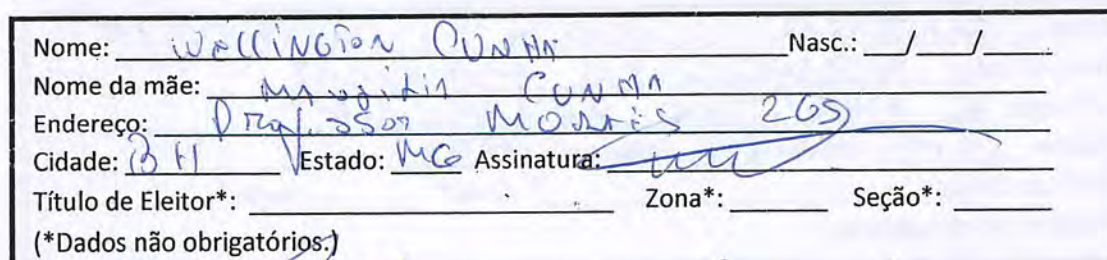 Nome: Wellington Cunha Nasc.: __/__/__
Nome da mãe: Cunha
Endereço: Professor Moraes 265
Cidade: BH Estado: MG Assinatura:
Título de Eleitor*: Zona*: Seção*:
(*Dados não obrigatórios.)